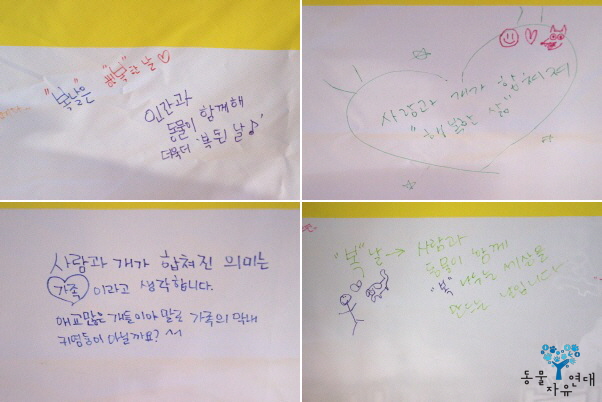 "복"날은 "행복"한 날♡
인간과
동물이 함께해
더욱더 '복된 날♪'
사람과 개가 합쳐져
"행복한 삶"
사람과 개가 합쳐진 의미는
가족 이라고 생각합니다.
애교많은 개들이야 말로 가족의 막내
귀염둥이 아닐까요? ^^
"복"날 → 사람과
동물이 함께
"복" 나누는 세상을
만드는 날입니다
동물
자유연대